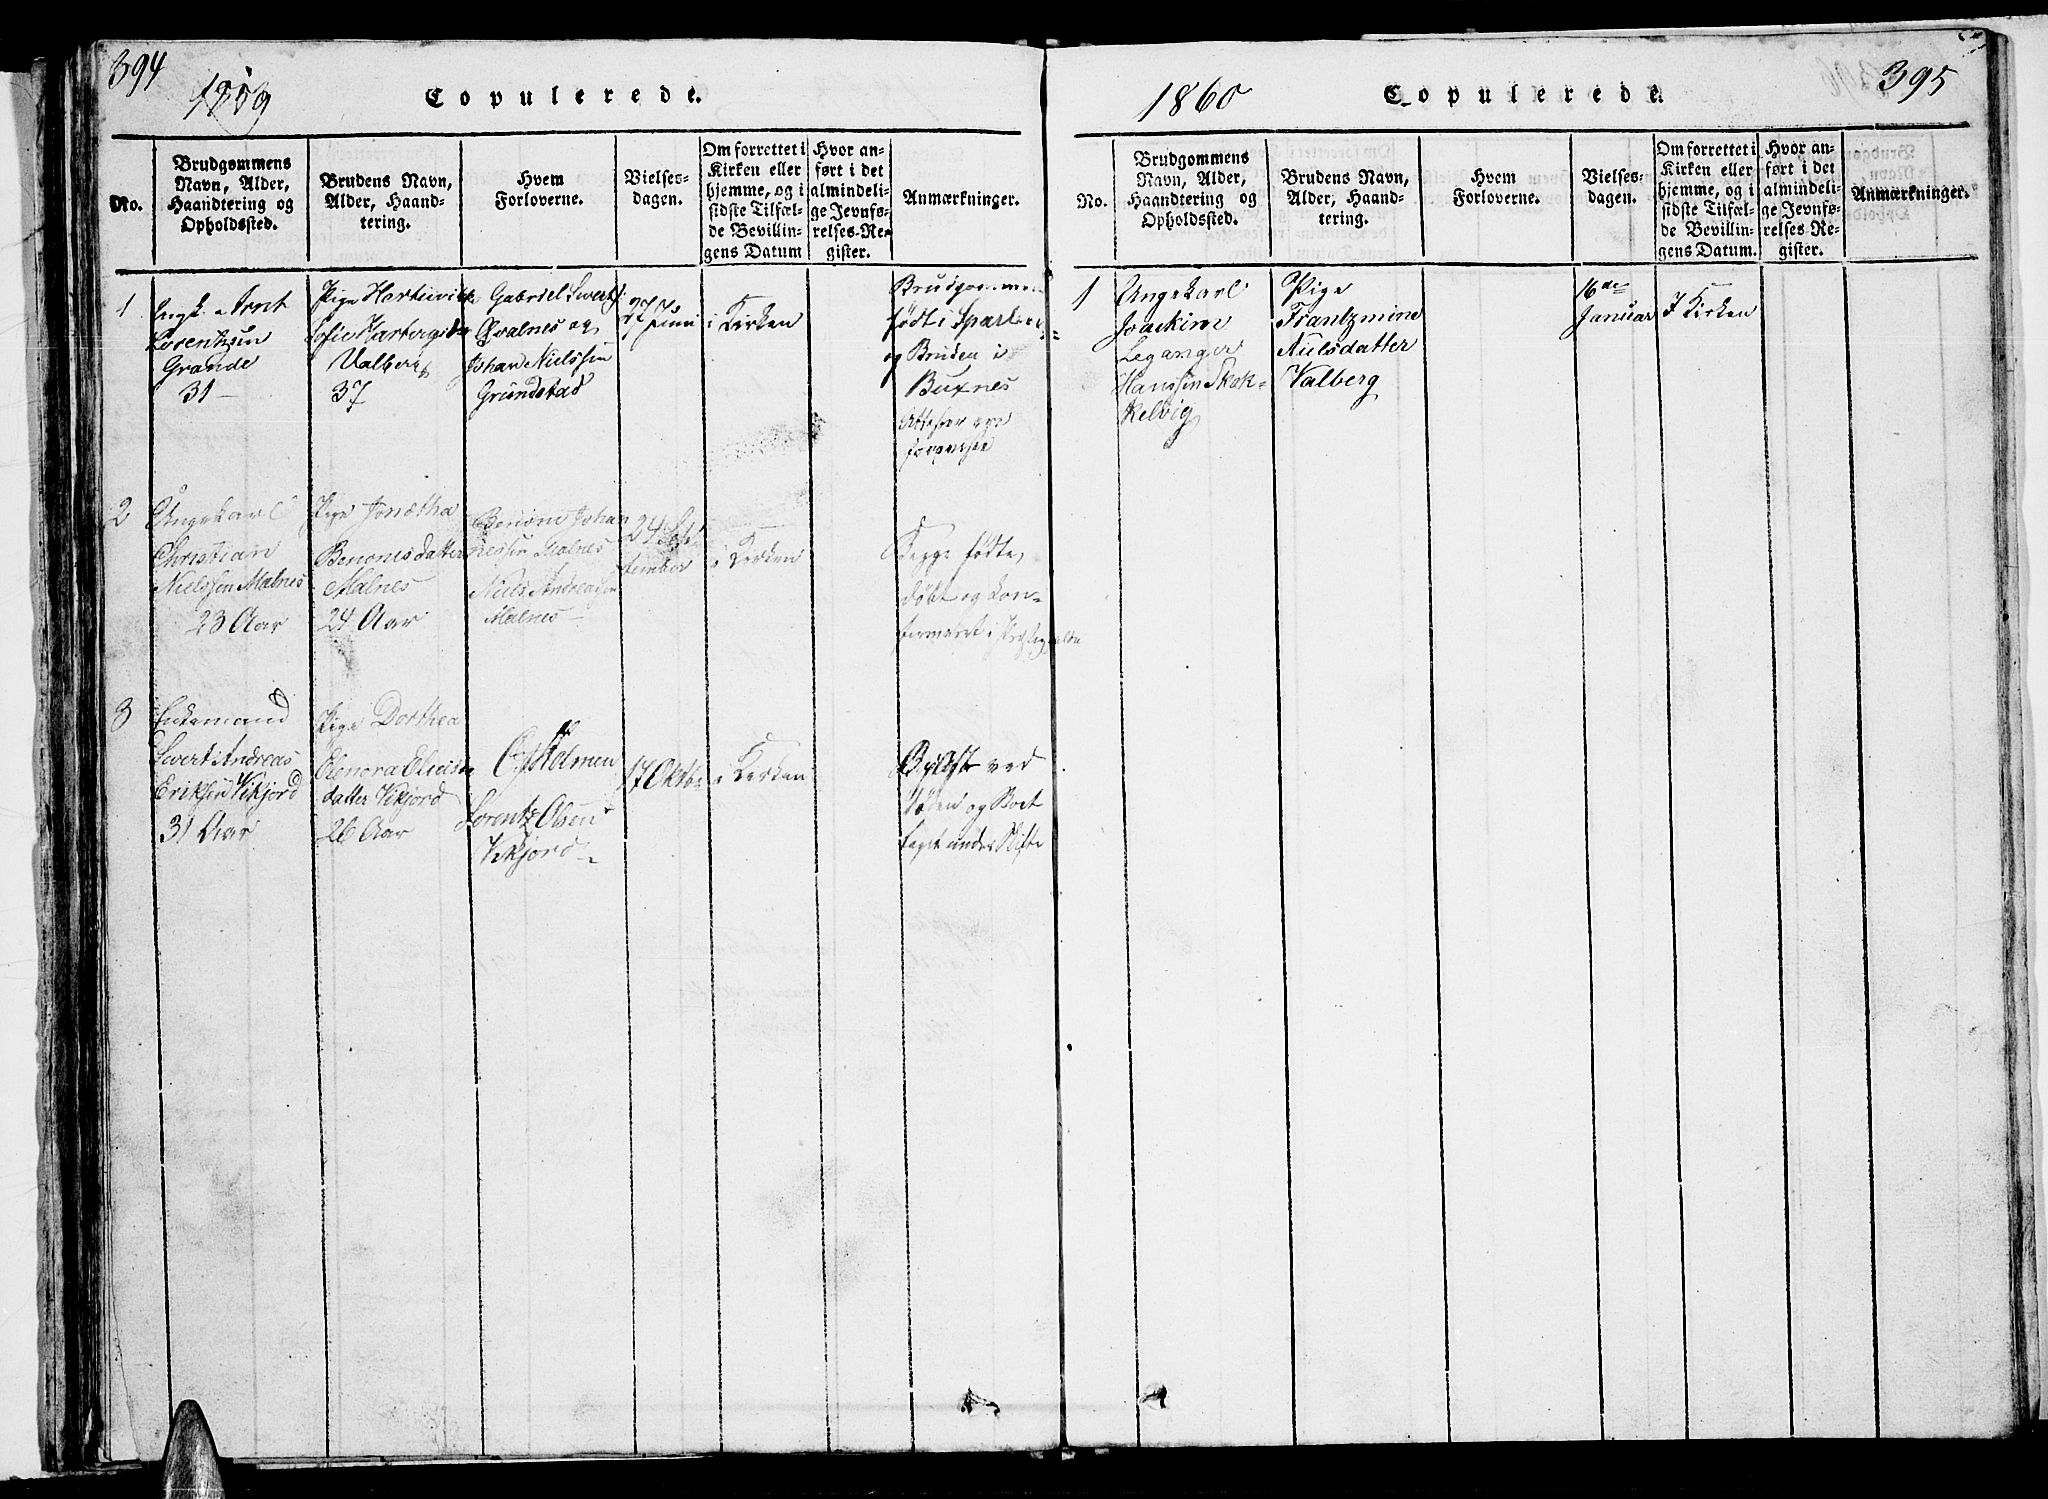 394
1859
Copulerede.
No.
Brudgommens
Navn, Alder,
Haandtering og
Opholdssted.
Brudens Navn,
Alder, Haand-
tering.
Hvem
Forloverne.
Vielses-
dagen.
Om forrettet i
Kirken eller
hjemme, og i
sidste Tilfæl-
de Bevillin-
gens Datum
Hvor an-
ført i det
almindeli-
ge Jevnfø-
relses-Re-
gister.
Anmærkninger.
1
Ungk. Arnt
Lorentzsen
Grande
31
Pige Hartwikke
Sofie Hartvigsda
Valberg
37
Gabriel Sverts
Qvalnes og
Johan Nielssen
Grundstad
27 Juni
i Kirken
Brudgommen
født i
og Bruden i
Buxnes
2
Ungekarl
Christian
Nielssen Malnes
23 Aar
Pige Jonetha
Benonisdatter
Malnes
24 Aar
Benoni Johan
nessen Malnes
Niels Andreassen
Malnes
24 Sep
tember
i Kirken
Begge fødte,
døbt og kon-
firmeret i Præstegjeldet
3
Enkemand
Sivert Andreas
Eriksen Vikjord
31 Aar
Pige Dorthea
Elenora Elias
datter Vikjord
26 Aar
Holmen
Lorentz Olsen
Vikjord
17 Oktbr
i Kirken
ved
og Boet
taget under Skifte
395
1860
Copulerede.
No.
Brudgommens
Navn, Alder,
Haandtering og
Opholdssted.
Brudens Navn,
Alder, Haand-
tering.
Hvem
Forloverne.
Vielses-
dagen.
Om forrettet i
Kirken eller
hjemme, og i
sidste Tilfæl-
de Bevillin-
gens Datum.
Hvor an-
ført i det
almindeli-
ge Jevnfø-
relses-Re-
gister.
Anmærkninger.
1
Ungekarl
Joackim
Leganger
Hanssen Skok-
kelvig
Pige
Frantzmine
Nilsdatter
Valberg
16de
Januar
I Kirken